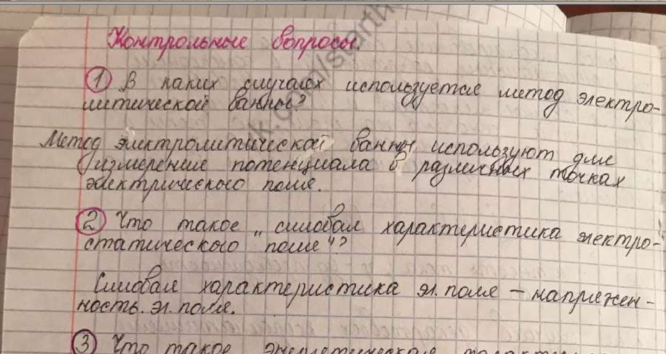 Контрольные вопросы.
1 В каких случаях используется метод электро-
литической ванны?
Метод электролитической ванны используют для
измерение потенциала в различных точках
электрического поля.
2 Что такое „силовая характеристика электро-
статического поля"?
Силовая характеристика эл. поля – напряжен-
ность. эл. поля.
3 Что такое